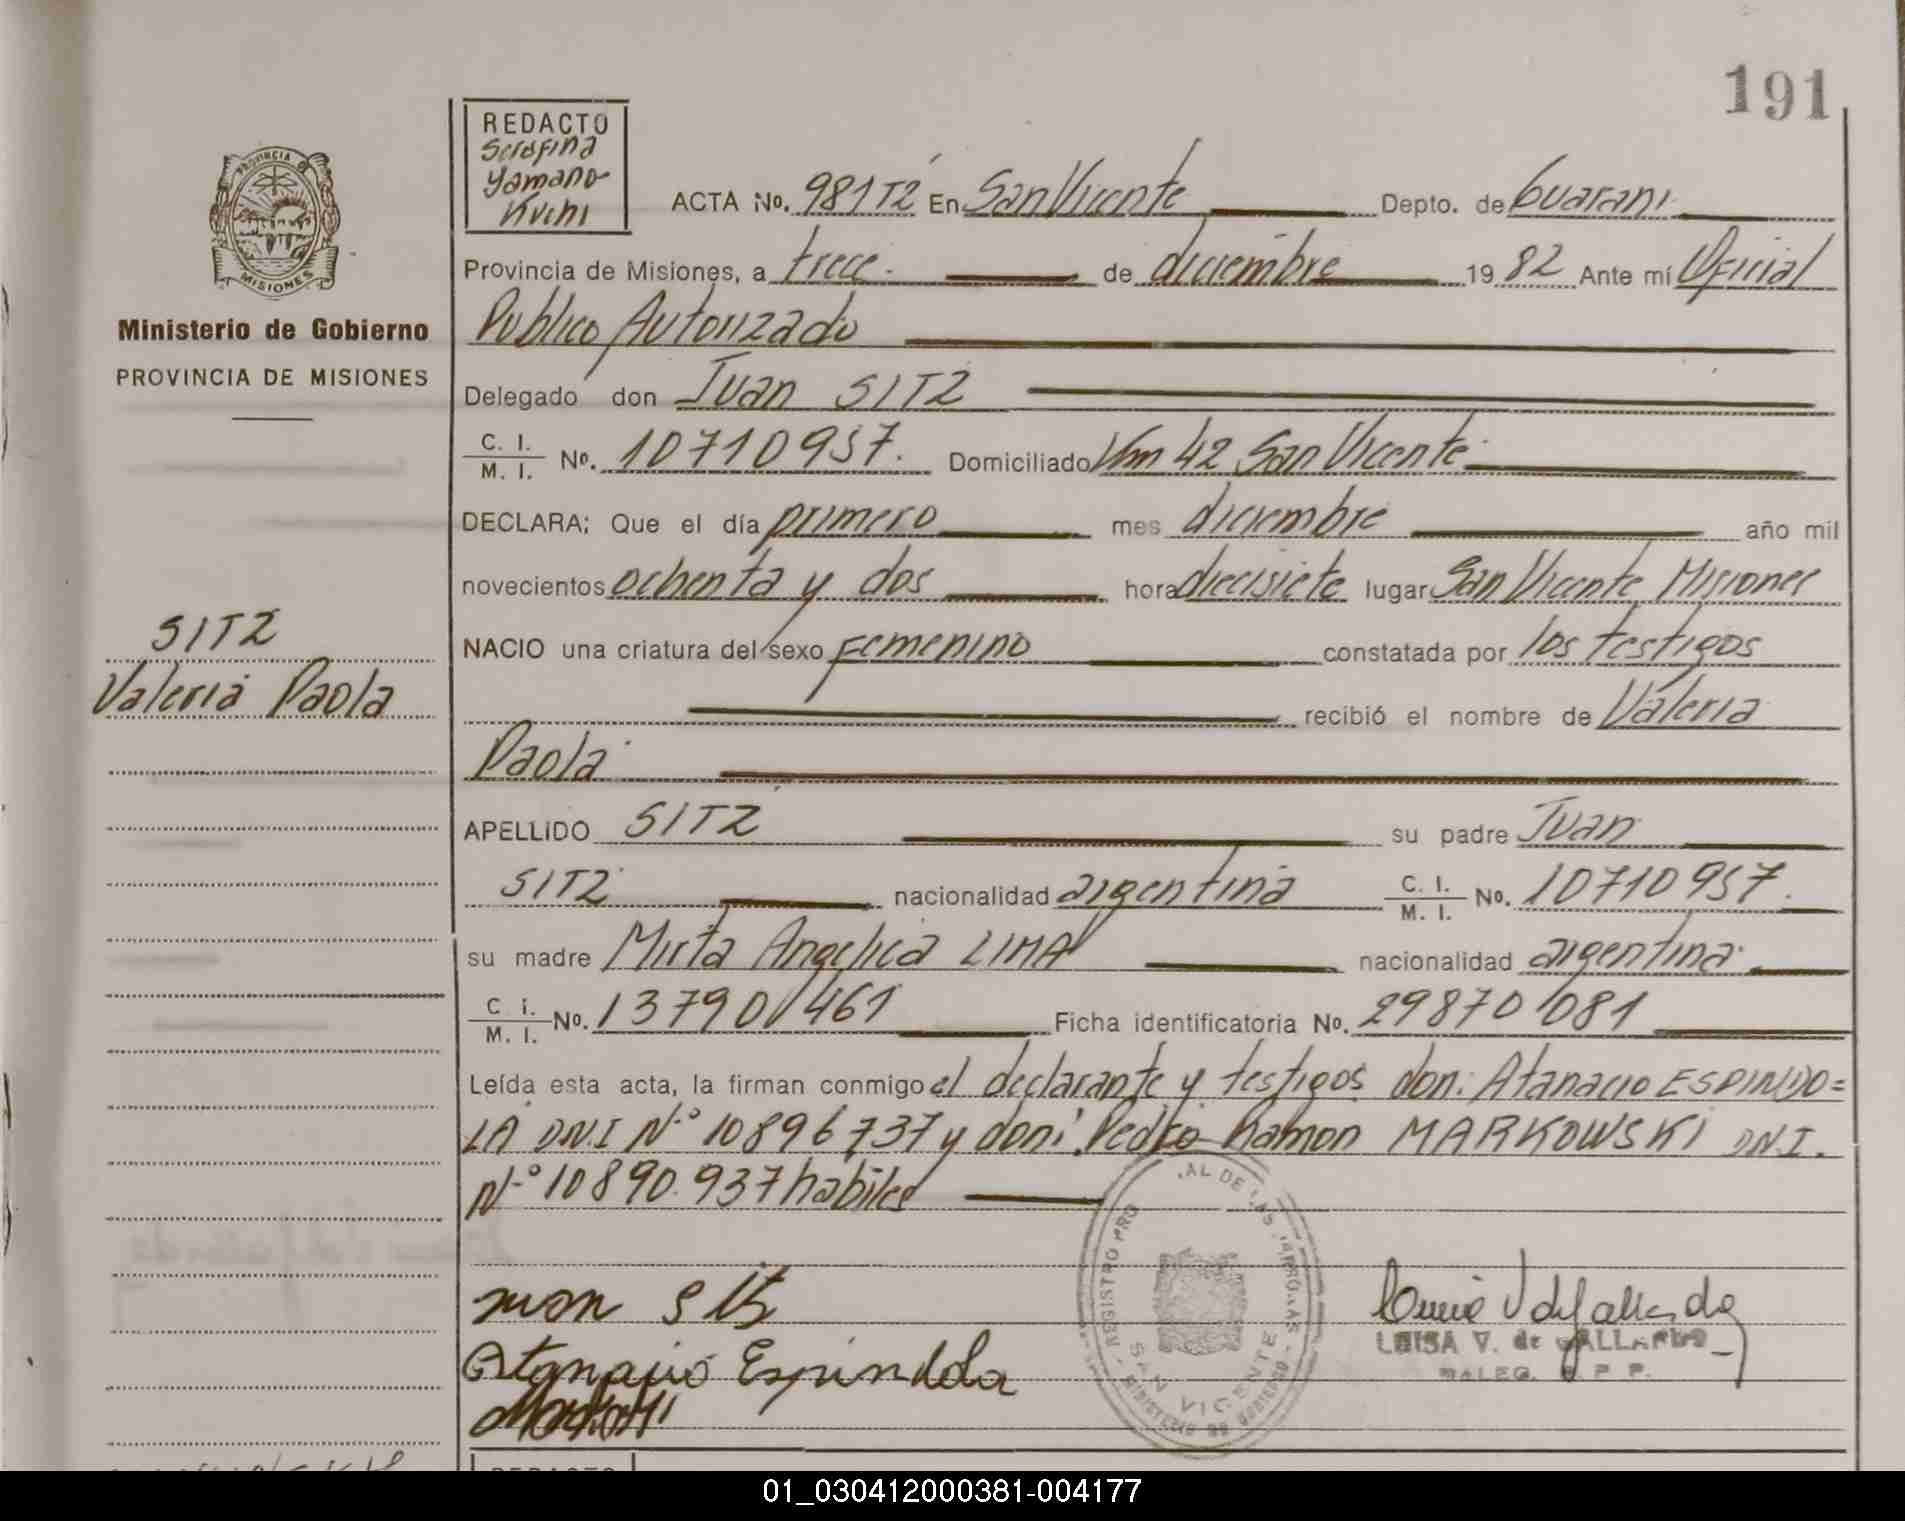 191
REDACTO
Serafina
Yamano-
Kuchi
PROVINCIA
MISIONES
ACTA No. 981T2 En San Vicente Depto. de Guarani
Provincia de Misiones, a trece. de diciembre 1982 Ante mí Oficial
Ministerio de Gobierno
Publico Autorizado
PROVINCIA DE MISIONES
Delegado don Juan SITZ
C. I.
M. I. No. 10710957. Domiciliado Km 42 San Vicente
DECLARA; Que el día primero mes diciembre año mil
novecientos ochenta y dos hora diecisiete lugar San Vicente Misiones
SITZ
Valeria Paola
NACIO una criatura del sexo Femenino constatada por los testigos
recibió el nombre de Valeria
Paola
APELLIDO SITZ su padre Juan
SITZ nacionalidad argentina C. I.
M. I. No. 10710957.
su madre Mirta Angelica LIMA nacionalidad argentina
C. I.
M. I. No. 13790461 Ficha identificatoria No. 29870081
Leída esta acta, la firman conmigo el declarante y testigos don: Atanacio ESPINDO=
LA DN.I N.º 10896737 y don: Pedro Ramon MARKOWSKI DN.I.
N.º 10890.937 habiles
juan sitz
Atanacio Espindola
REGISTRO PRO AL DE LAS PERSONAS
SAN VICENTE
MINISTERIO DE GOBIERNO
LUISA V. de GALLARDO
REDACTO
01_030412000381-004177